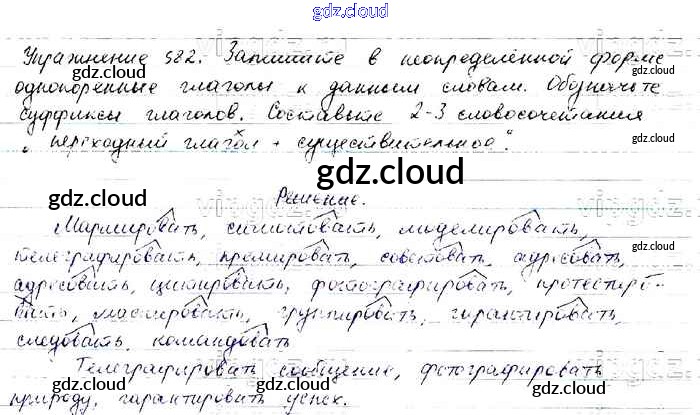 gdz.cloud
Упражнение 582. Запишите в неопределённой форме
однокоренные глаголы к данным словам. Обозначьте
суффиксы глаголов. Составьте 2-3 словосочетания
„переходный глагол + существительное".
gdz.cloud
Решение.
Маршировать, сигналовать, моделировать,
телеграфировать, премировать, советовать, адресовать,
адресовать, цитировать, фотографировать, протестиро-
вать, массировать, группировать, гарантировать,
следовать, командовать
Телеграфировать сообщение, фотографировать
природу, гарантировать успех.